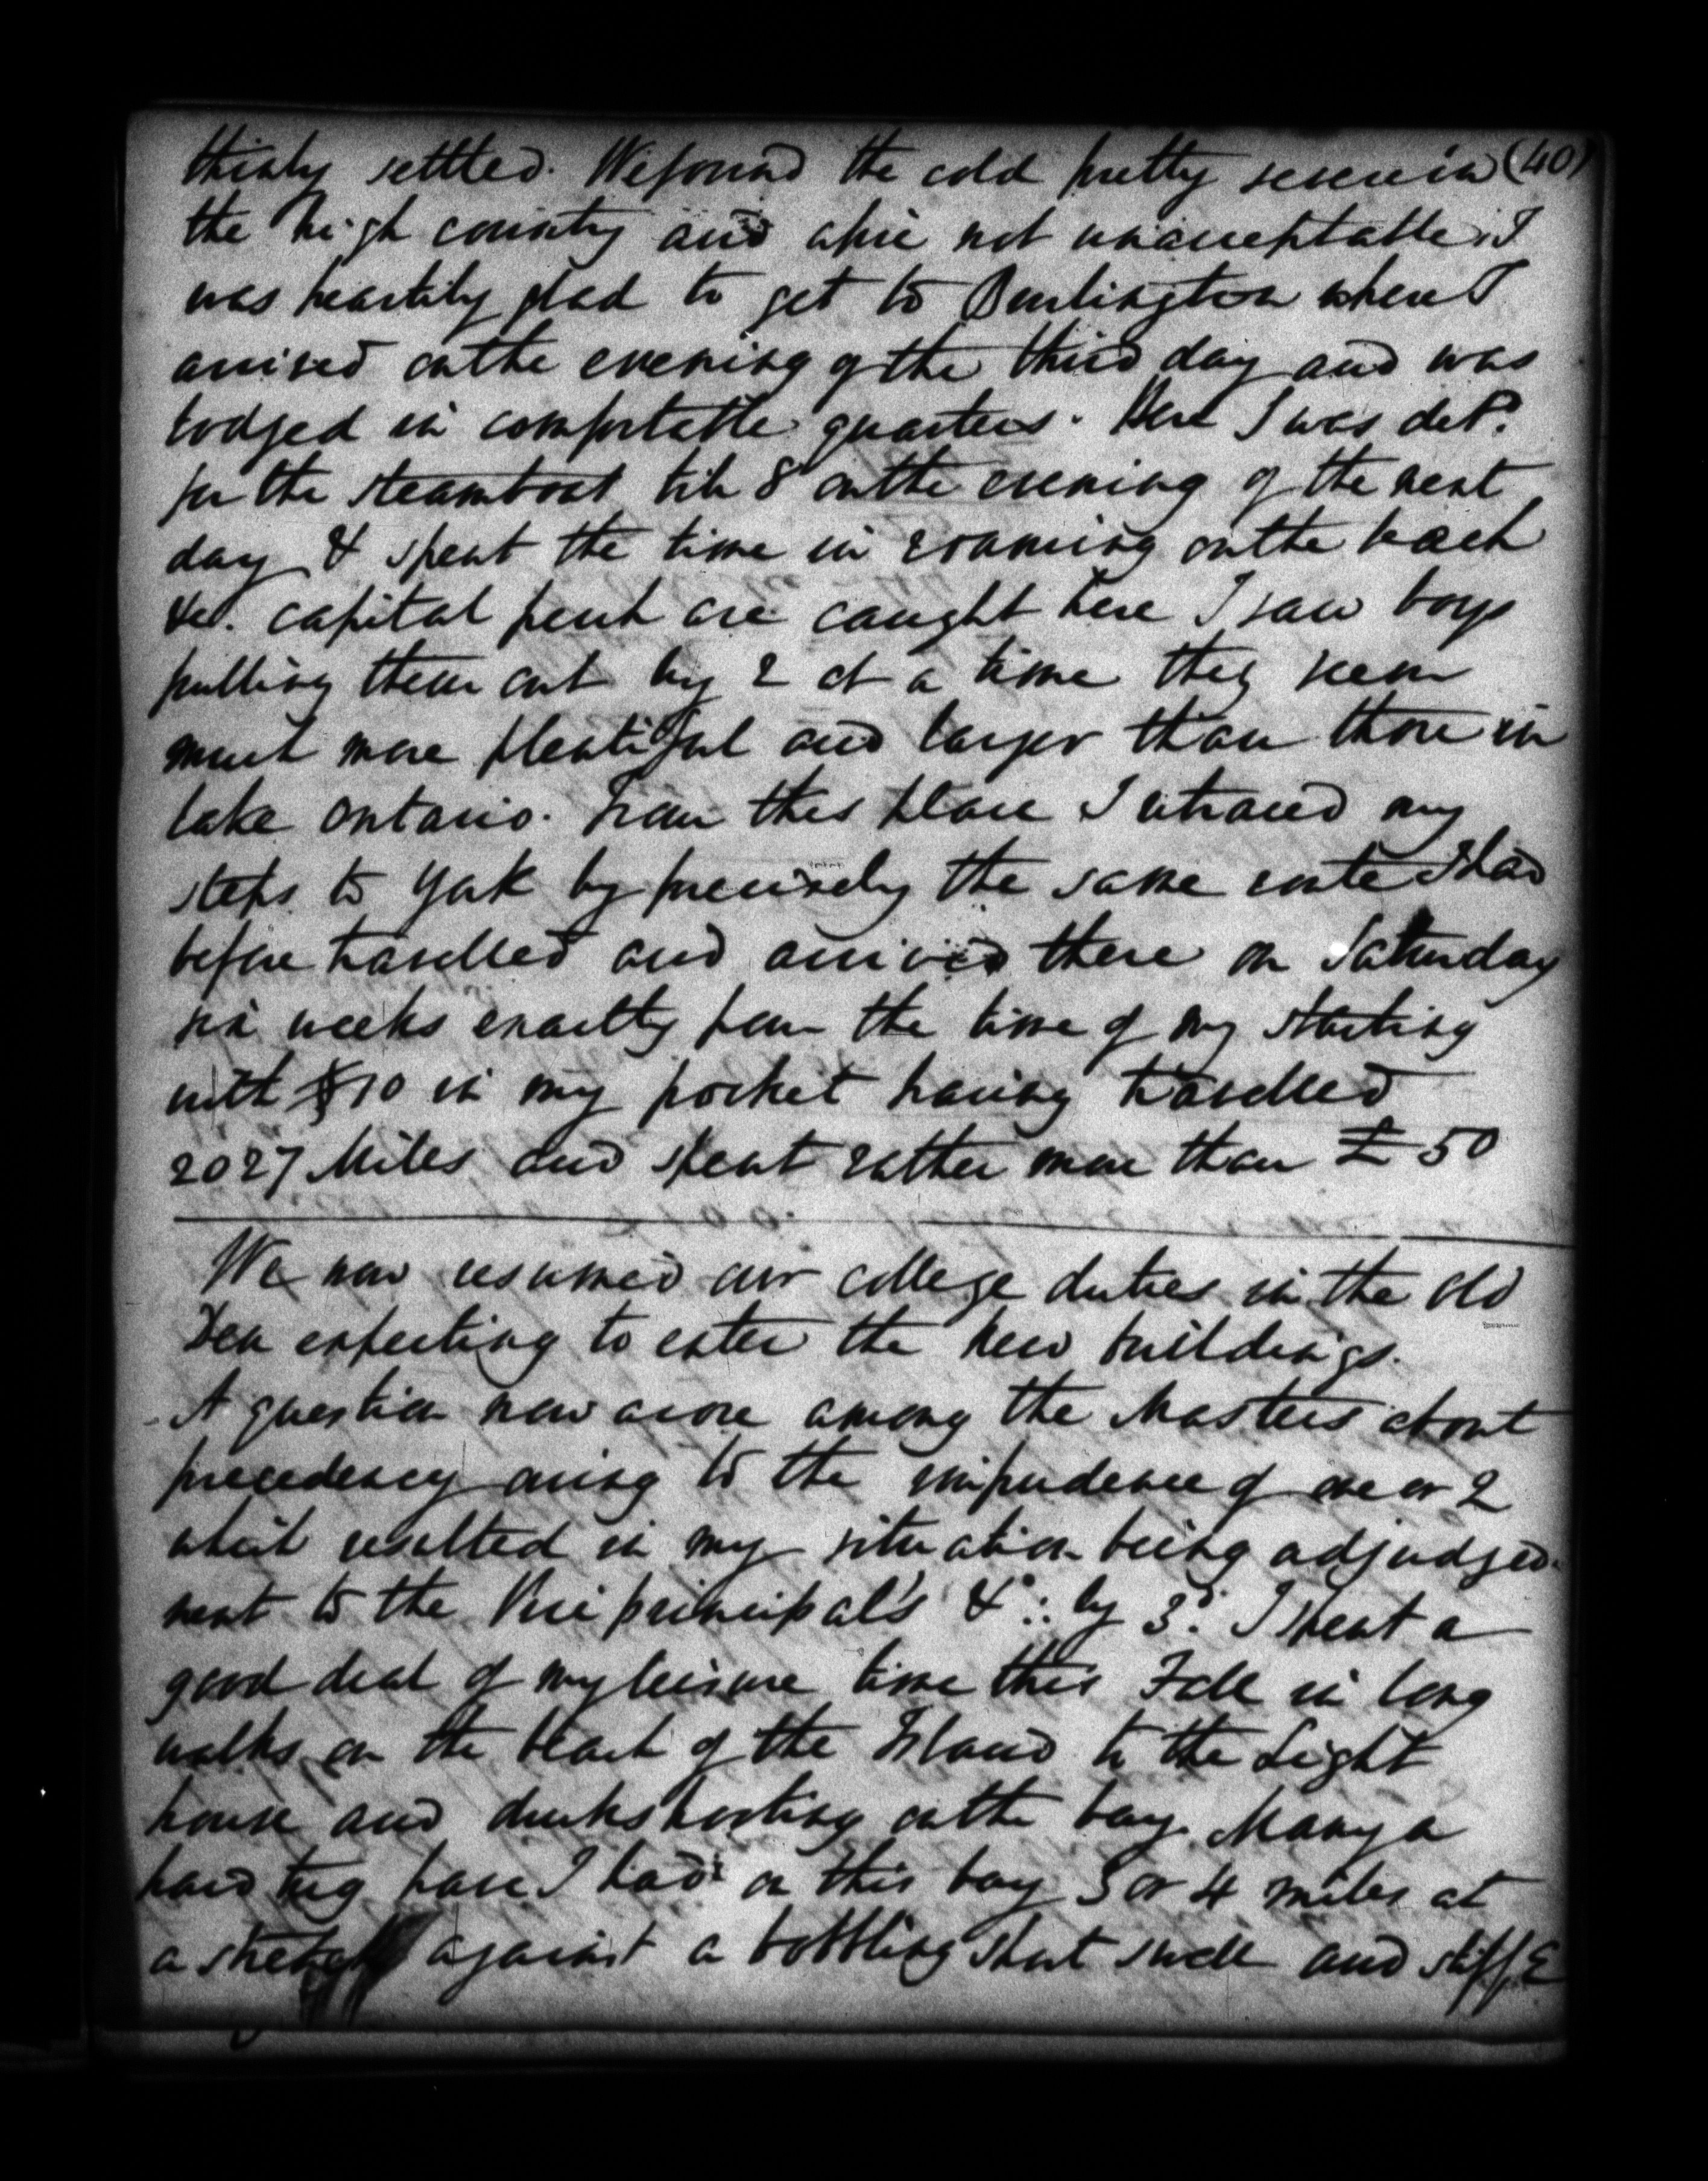 thinly settled. We found the cold pretty severe in (40)
the high country and a fire not unacceptable. I
was heartily glad to get to Burlington where I
arrived on the evening of the third day and was
lodged in comfortable quarters. Here I was detd.
for the steamboat till 8 on the evening of the next
day & spent the time in roaming on the beach
&c. capital perch are caught here I saw boys
pulling them out by 2 at a time they seem
much more plentiful and larger than those in
lake Ontario. From this place I retraced my
steps to York by precisely the same route I had
before travelled and arrived there on Saturday
six weeks exactly from the time of my starting
with $10 in my pocket having travelled
2027 Miles and spent rather more than £50
We now resumed our college duties in the old
Den expecting to enter the new buildings.
A question now arose among the Masters about
precedency owing to the impudence of one or 2
which resulted in my situation being adjudged
next to the Vice principal's & ∴ by 3d. I spent a
good deal of my leisure time this Fall in long
walks on the beach of the Island to the Light
house and duckshooting on the bay. Many a
hard tug have I had on this bay 3 or 4 miles at
a stretch against a bobbling short swell and stiff E